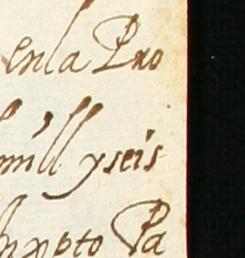 enla Pro
mill yseis
xpto Pa